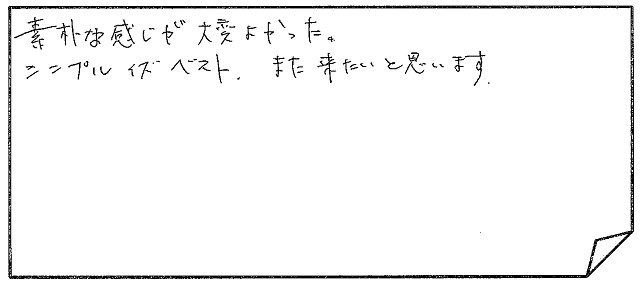 素朴な感じが大変よかった。
シンプルイズベスト. また来たいと思います.